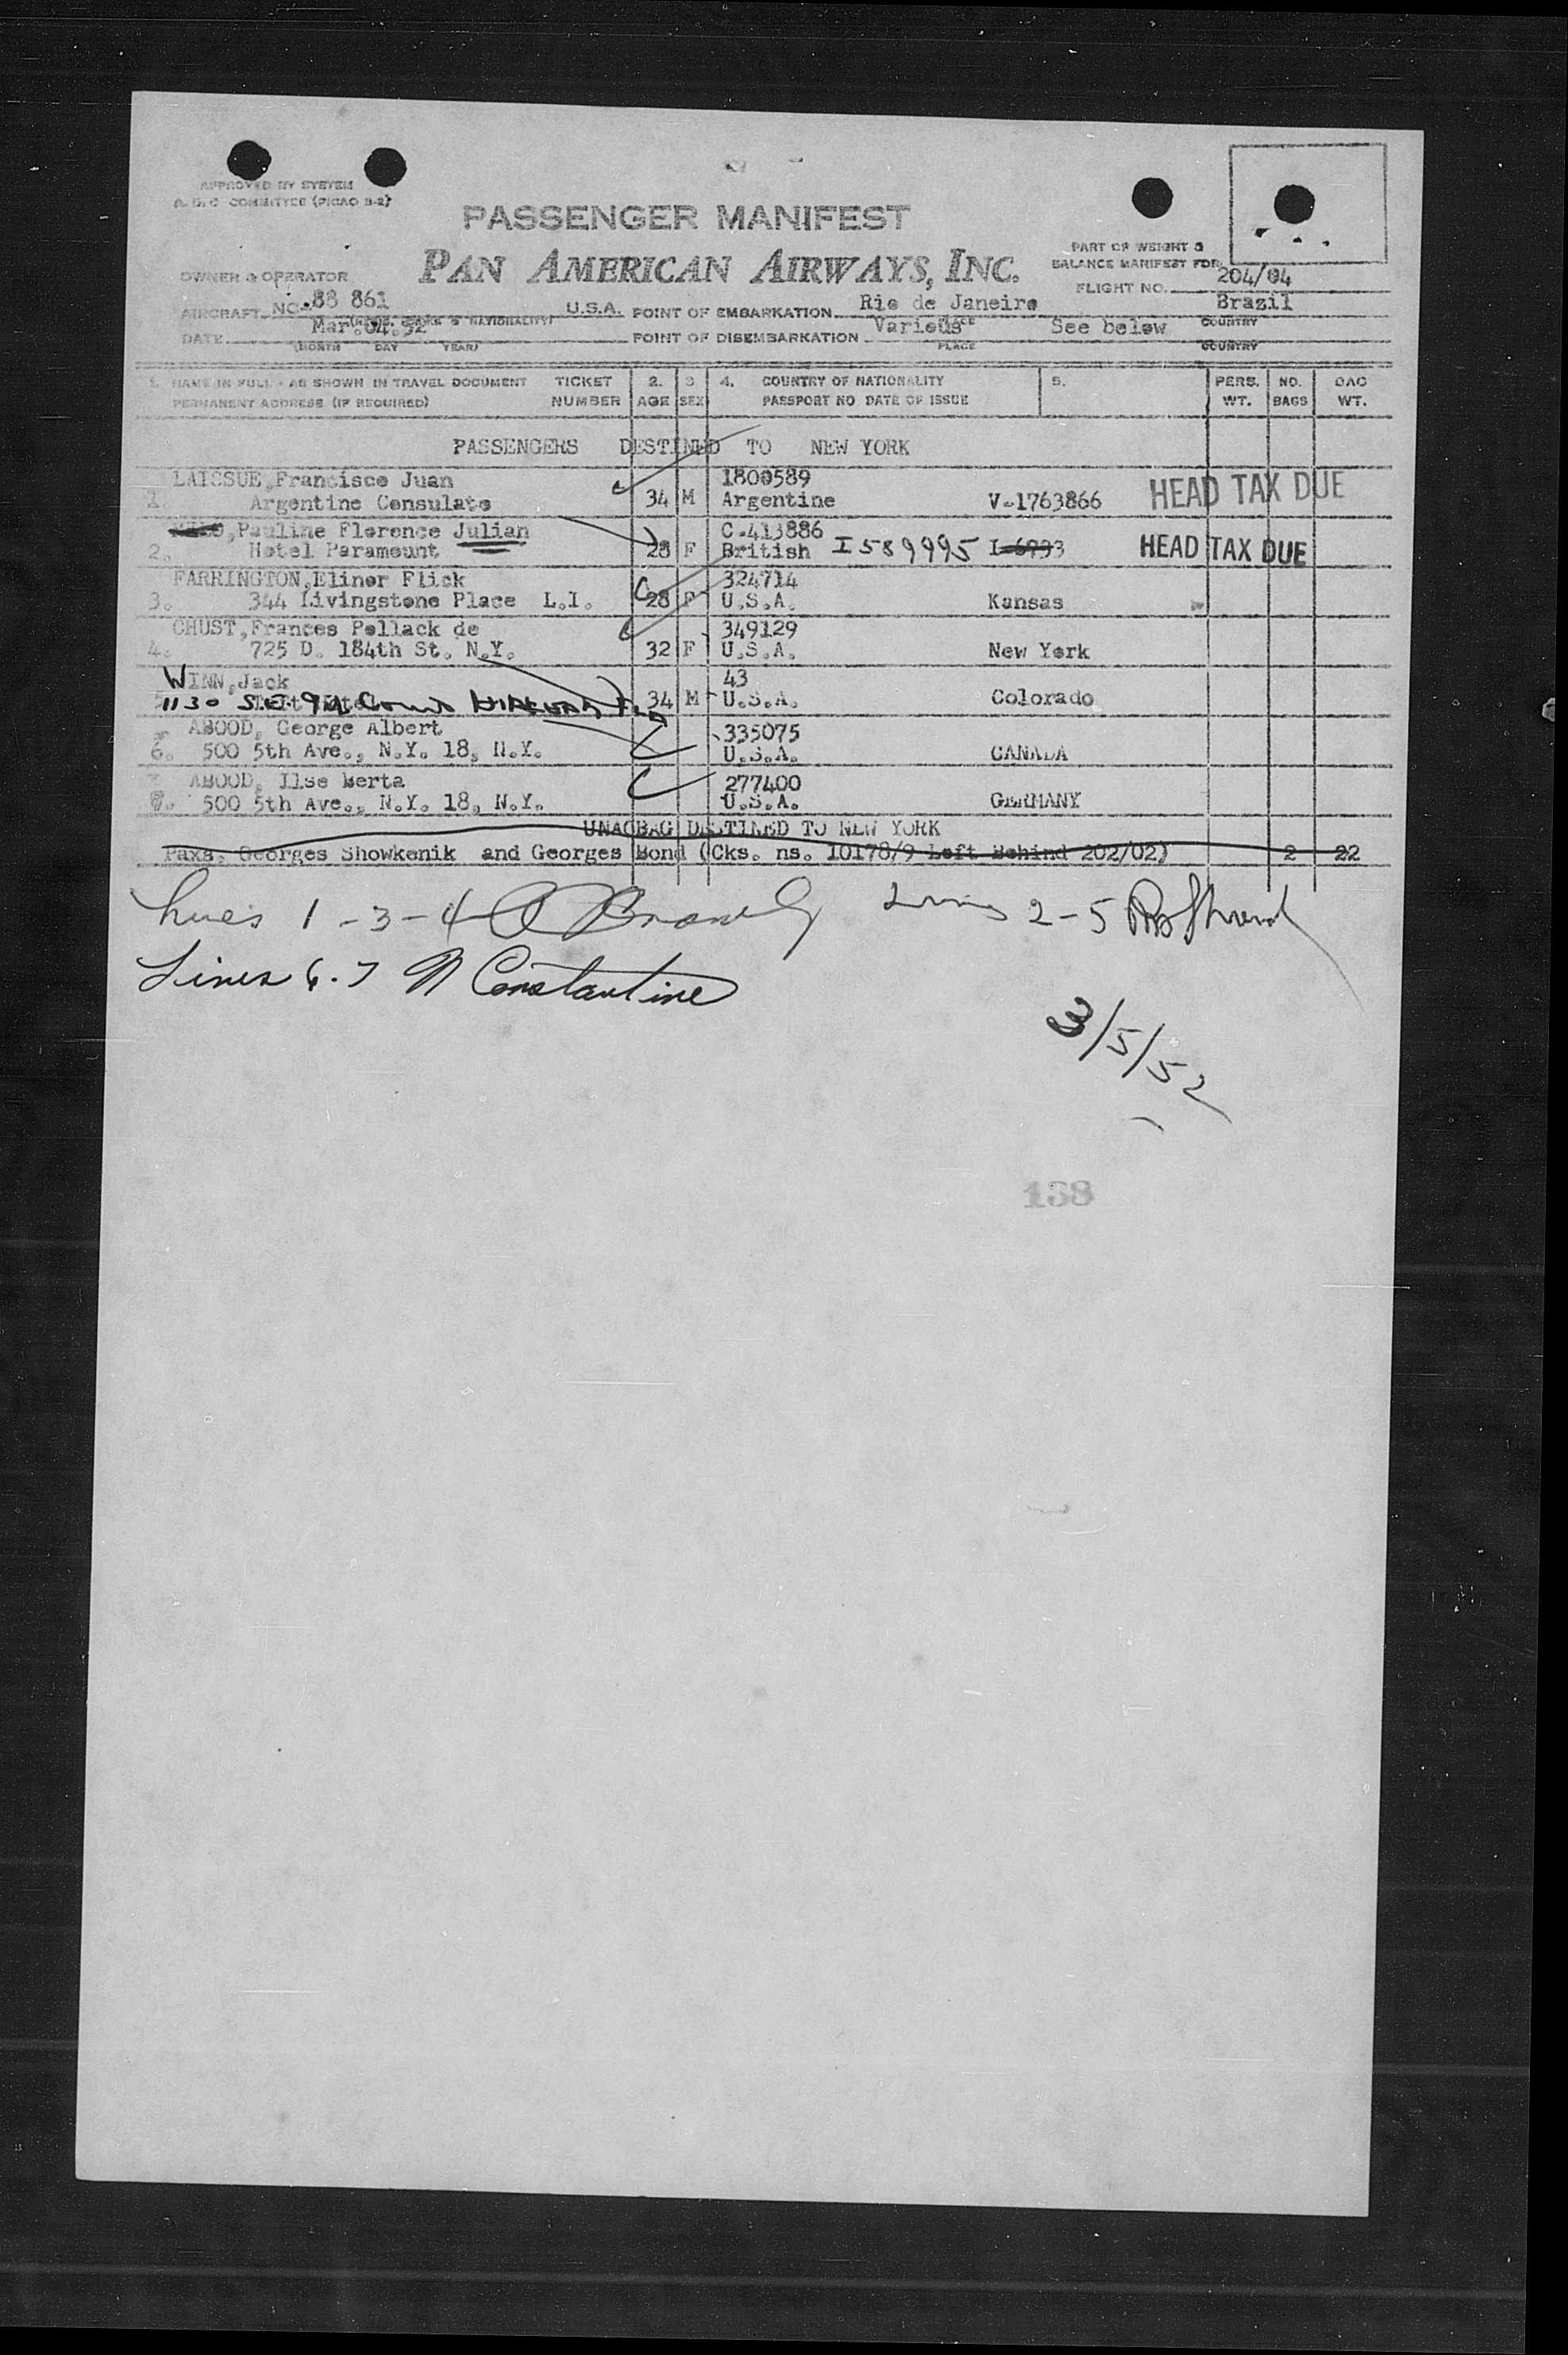 APPROVED BY SYSTEM
A. D. C COMMITTEE (PICAO B-2)
PASSENGER MANIFEST
PAN AMERICAN AIRWAYS, INC.
PART OF WEIGHT &
BALANCE MANIFEST FOR
FLIGHT NO. 204/04
OWNER & OPERATOR
AIRCRAFT NC-88 861 U.S.A. POINT OF EMBARKATION Rio de Janeiro Brazil
& NATIONALITY) PLACE COUNTRY
DATE Mar.04.52 POINT OF DISEMBARKATION Various See below
(MONTH DAY YEAR) PLACE COUNTRY
1. NAME IN FULL - AS SHOWN IN TRAVEL DOCUMENT TICKET 2. 3 4. COUNTRY OF NATIONALITY 5. PERS. NO. OAC
PERMANENT ADDRESS (IF REQUIRED) NUMBER AGE SEX PASSPORT NO DATE OF ISSUE WT. BAGS WT.
PASSENGERS DESTINED TO NEW YORK
LAISSUE,Francisco Juan 1800589
1. Argentine Consulate 34 M Argentine V-1763866 HEAD TAX DUE
,Pauline Florence Julian C-413886
2. Hotel Paramount 28 F British I 589995 I-6993 HEAD TAX DUE
FARRINGTON,Elinor Flick 324714
3. 344 Livingstone Place L.I. 28 F U.S.A. Kansas
CHUST,Frances Pollack de 349129
4. 725 D. 184th St. N.Y. 32 F U.S.A. New York
WINN,Jack 43
1130 S.E. 9th Court HIALEAH FLA 34 M U.S.A. Colorado
ABOOD, George Albert 335075
6. 500 5th Ave., N.Y. 18, N.Y. U.S.A. CANADA
ABOOD, Ilse Berta 277400
7. 500 5th Ave., N.Y. 18, N.Y. U.S.A. GERMANY
UNACBAG DESTINED TO NEW YORK
Paxs. Georges Showkenik and Georges Bond (Cks. ns. 10178/9 Left Behind 202/02) 2 22
Lines 1-3-4 Lines 2-5
Lines 6-7 N Constantine
3/5/52
138